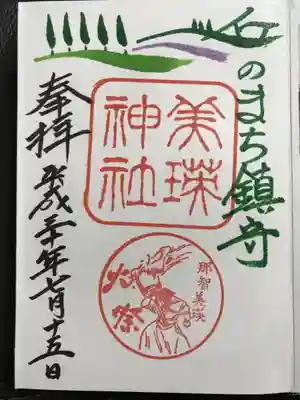 丘のまち鎮守
美瑛
神社
那智美瑛
火祭
奉拝
平成三十年七月十五日